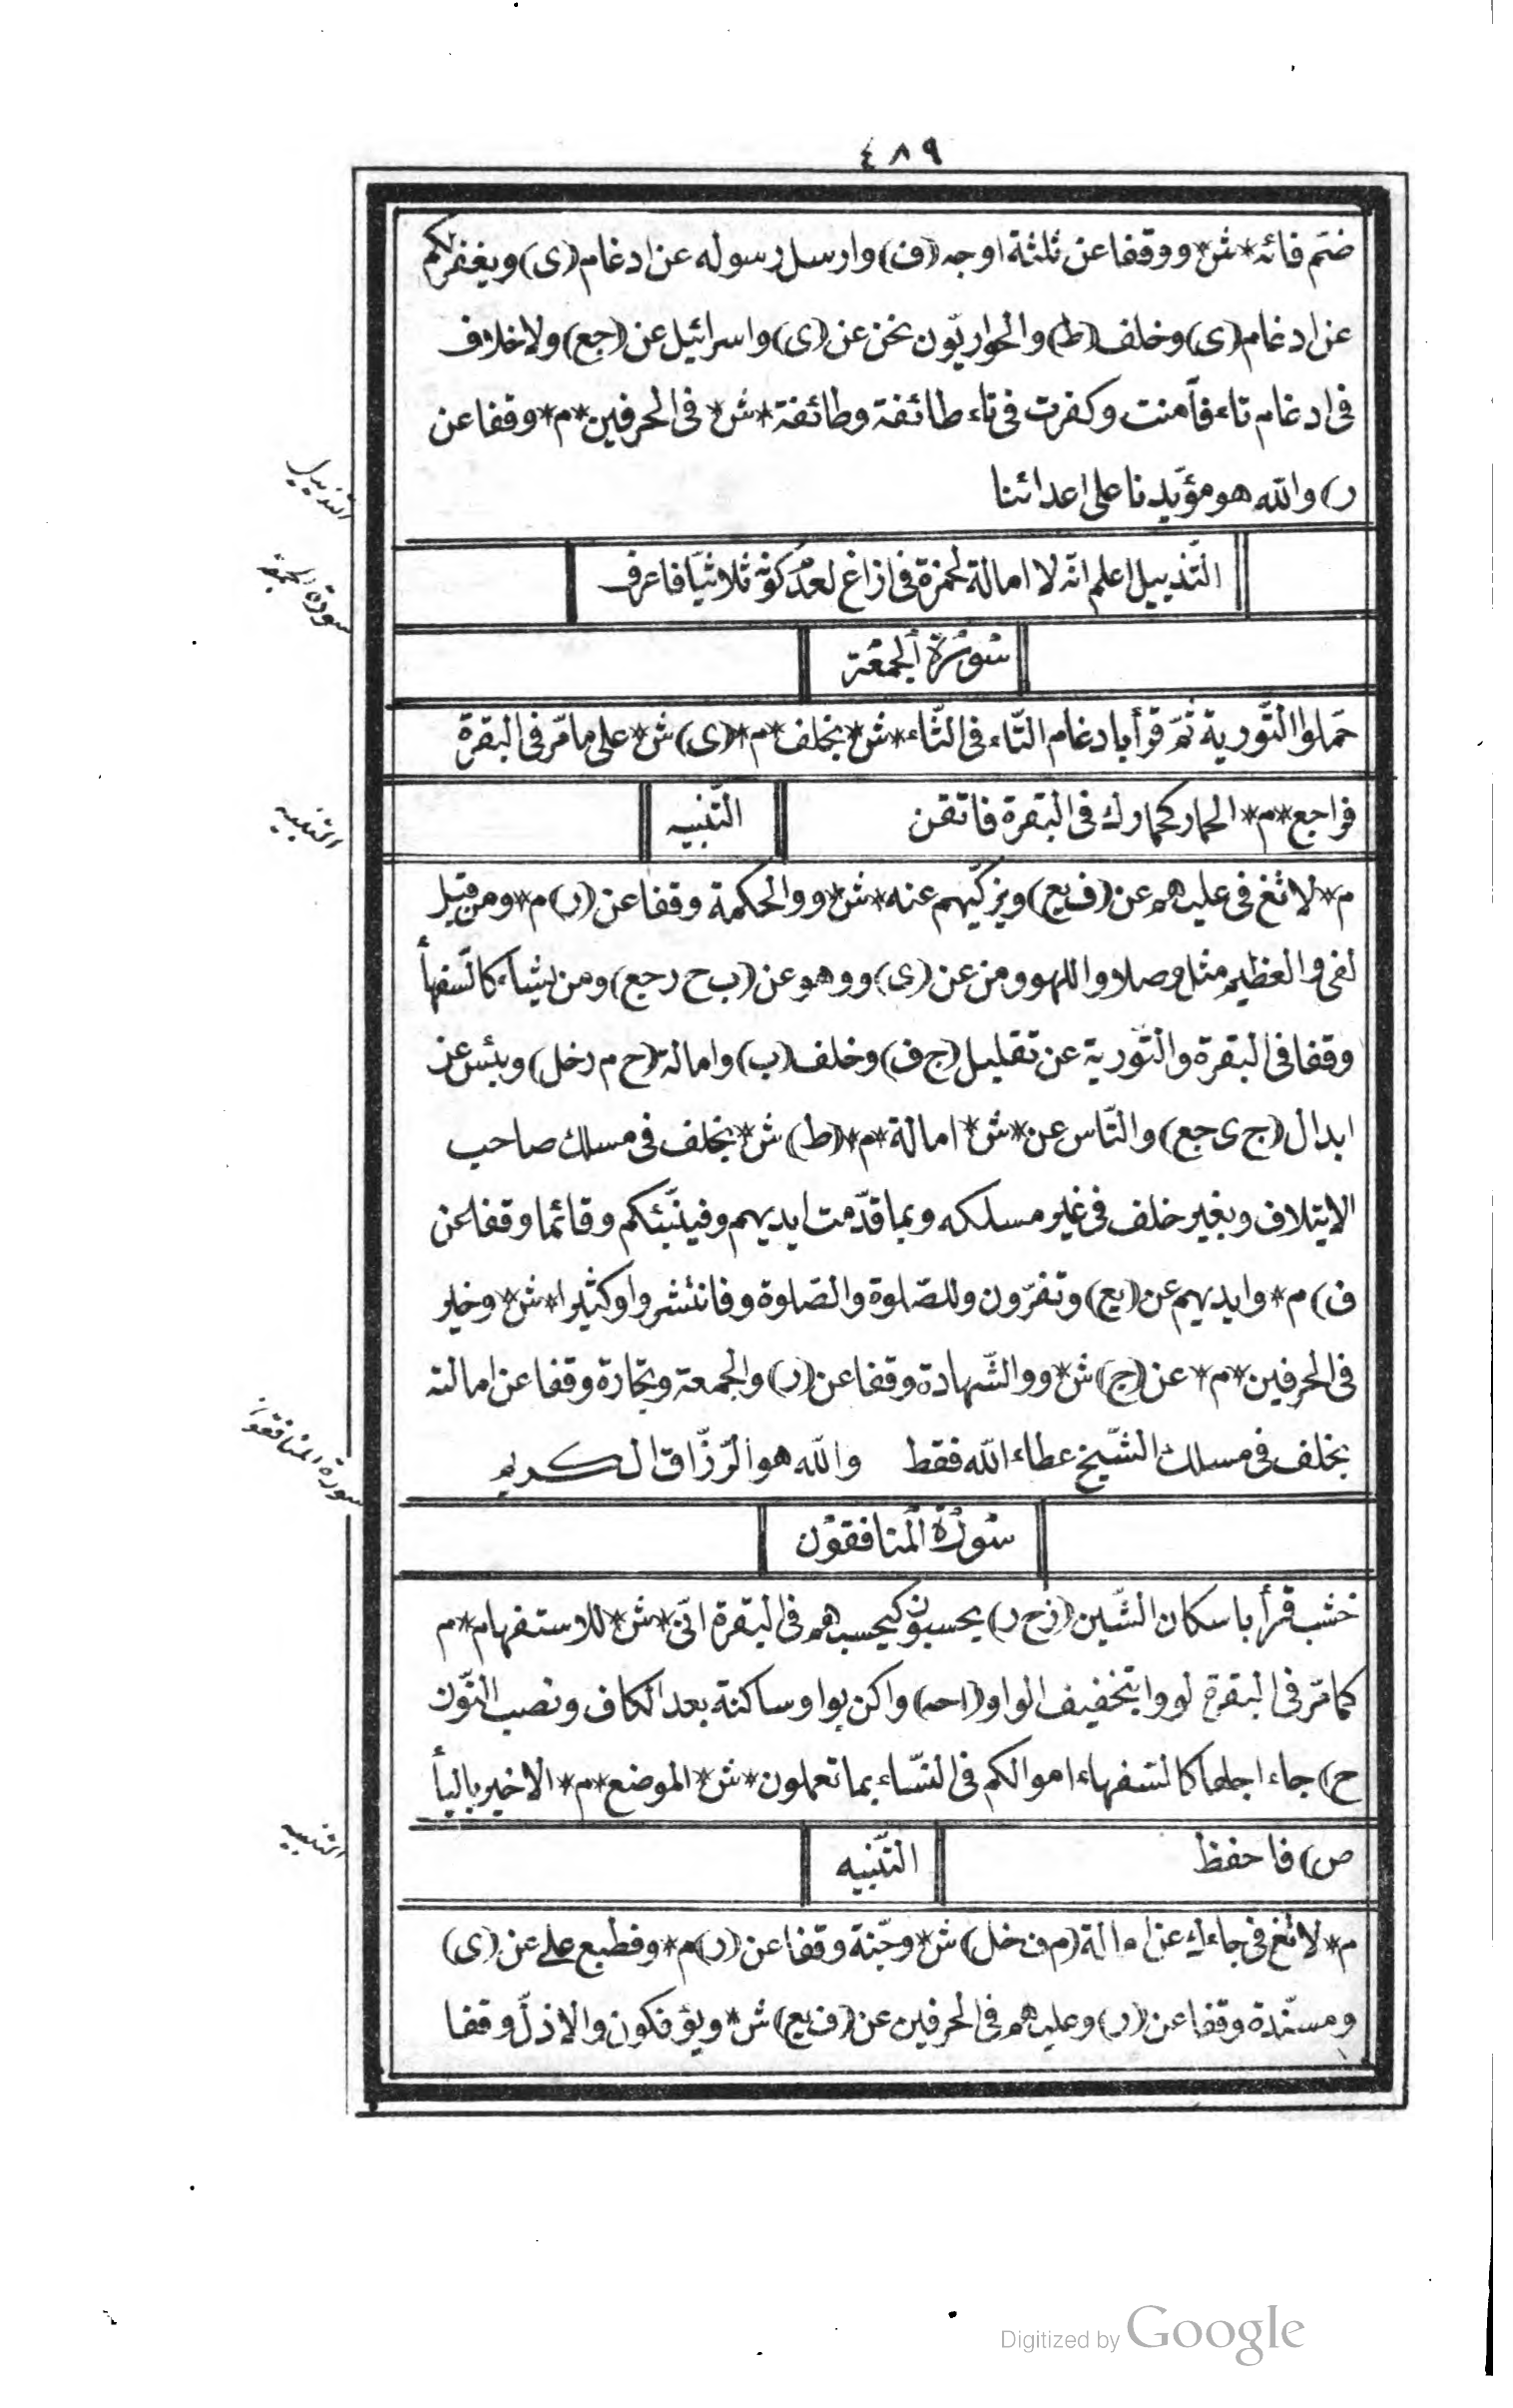 ٤٨٩
ضمّ فائه *ش* ووقفا عن ثلثة اوجه (ف) وارسل رسوله عن ادغام (ى) ويغفر لكم
عن ادغام (ى) وخلف (ط) والحواريّون نحن عن (ى) واسرائيل عن (جع) ولا خلاف
فى ادغام تاء فآمنت وكفرت فى تاء طائفة وطائفة *ش* فى الحرفين *م* وقفا عن
ر) والله هو مؤيّدنا على اعدائنا
التذييل
التّذييل اعلم انّه لا امالة لحمزة فى ازاغ لعدم كونه ثلاثيّا فاعرف
سورة الجمعة
سُورَةُ الجُمعَة
حمّلوا التّورية ثمّ قرأ بادغام التّاء فى الثّاء *ش* بخلف *م* (ى) ش* على مامرّ فى البقرة
فراجع *م* الحمار كحمارك فى البقرة فاتقن
التّنبيه
التنبيه
م* لا تغ فى عليهم عن (ف يع) ويزكّيهم عنه *ش* ووالحكمة وقفا عن (ر) م* ومن قبل
لفى والعظيم مثل وصلا واللهو ومن عن (ى) ووهو عن (ب ح ر جع) ومن يشاء كالسّفهأ
وقفا فى البقرة والتّورية عن تقليل (ج ف) وخلف (ب) وامالة (ح م ر خل) وبئس عن
ابدال (ج ى جع) والنّاس عن *ش* امالة *م* (ط) ش* بخلف فى مسلك صاحب
الايتلاف وبغير خلف فى غير مسلكه وبما قدّمت ايديهم وفينبّئكم وقائما وقفا عن
ف) م* وايديهم عن (يع) وتفرّون وللصّلوة والصّلوة وفانتشروا وكثيرا *ش* وخير
فى الحرفين *م* عن (ج) ش* ووالشّهادة وقفا عن (ر) والجمعة وتجارة وقفا عن امالته
بخلف فى مسلك الشّيخ عطاء الله فقط والله هو الرّزّاق الكريم
سورة المنافقون
سُورَةُ المُنافقون
خشب قرأ باسكان الشّين (ز ح ر) يحسبون كيحسبهم فى البقرة انّى *ش* للاستفهام *م
كمامرّ فى البقرة لووا بتخفيف الواو (احه) واكن بواو ساكنة بعد الكاف ونصب النّون
ح) جاء اجلها كالسّفهاء اموالكم فى النّساء بما تعملون *ش* الموضع *م* الاخير باليأ
ص) فاحفظ
التّنبيه
التنبيه
م* لا تغ فى جاءك عن امالة (م ف خل) ش* وجّنة وقفا عن (ر) م* وفطبع على عن (ى)
ومسنّدة وقفا عن (ر) وعليهم فى الحرفين عن (ف يع) ش* ويؤفكون والاذلّ وقفا
Digitized by Google